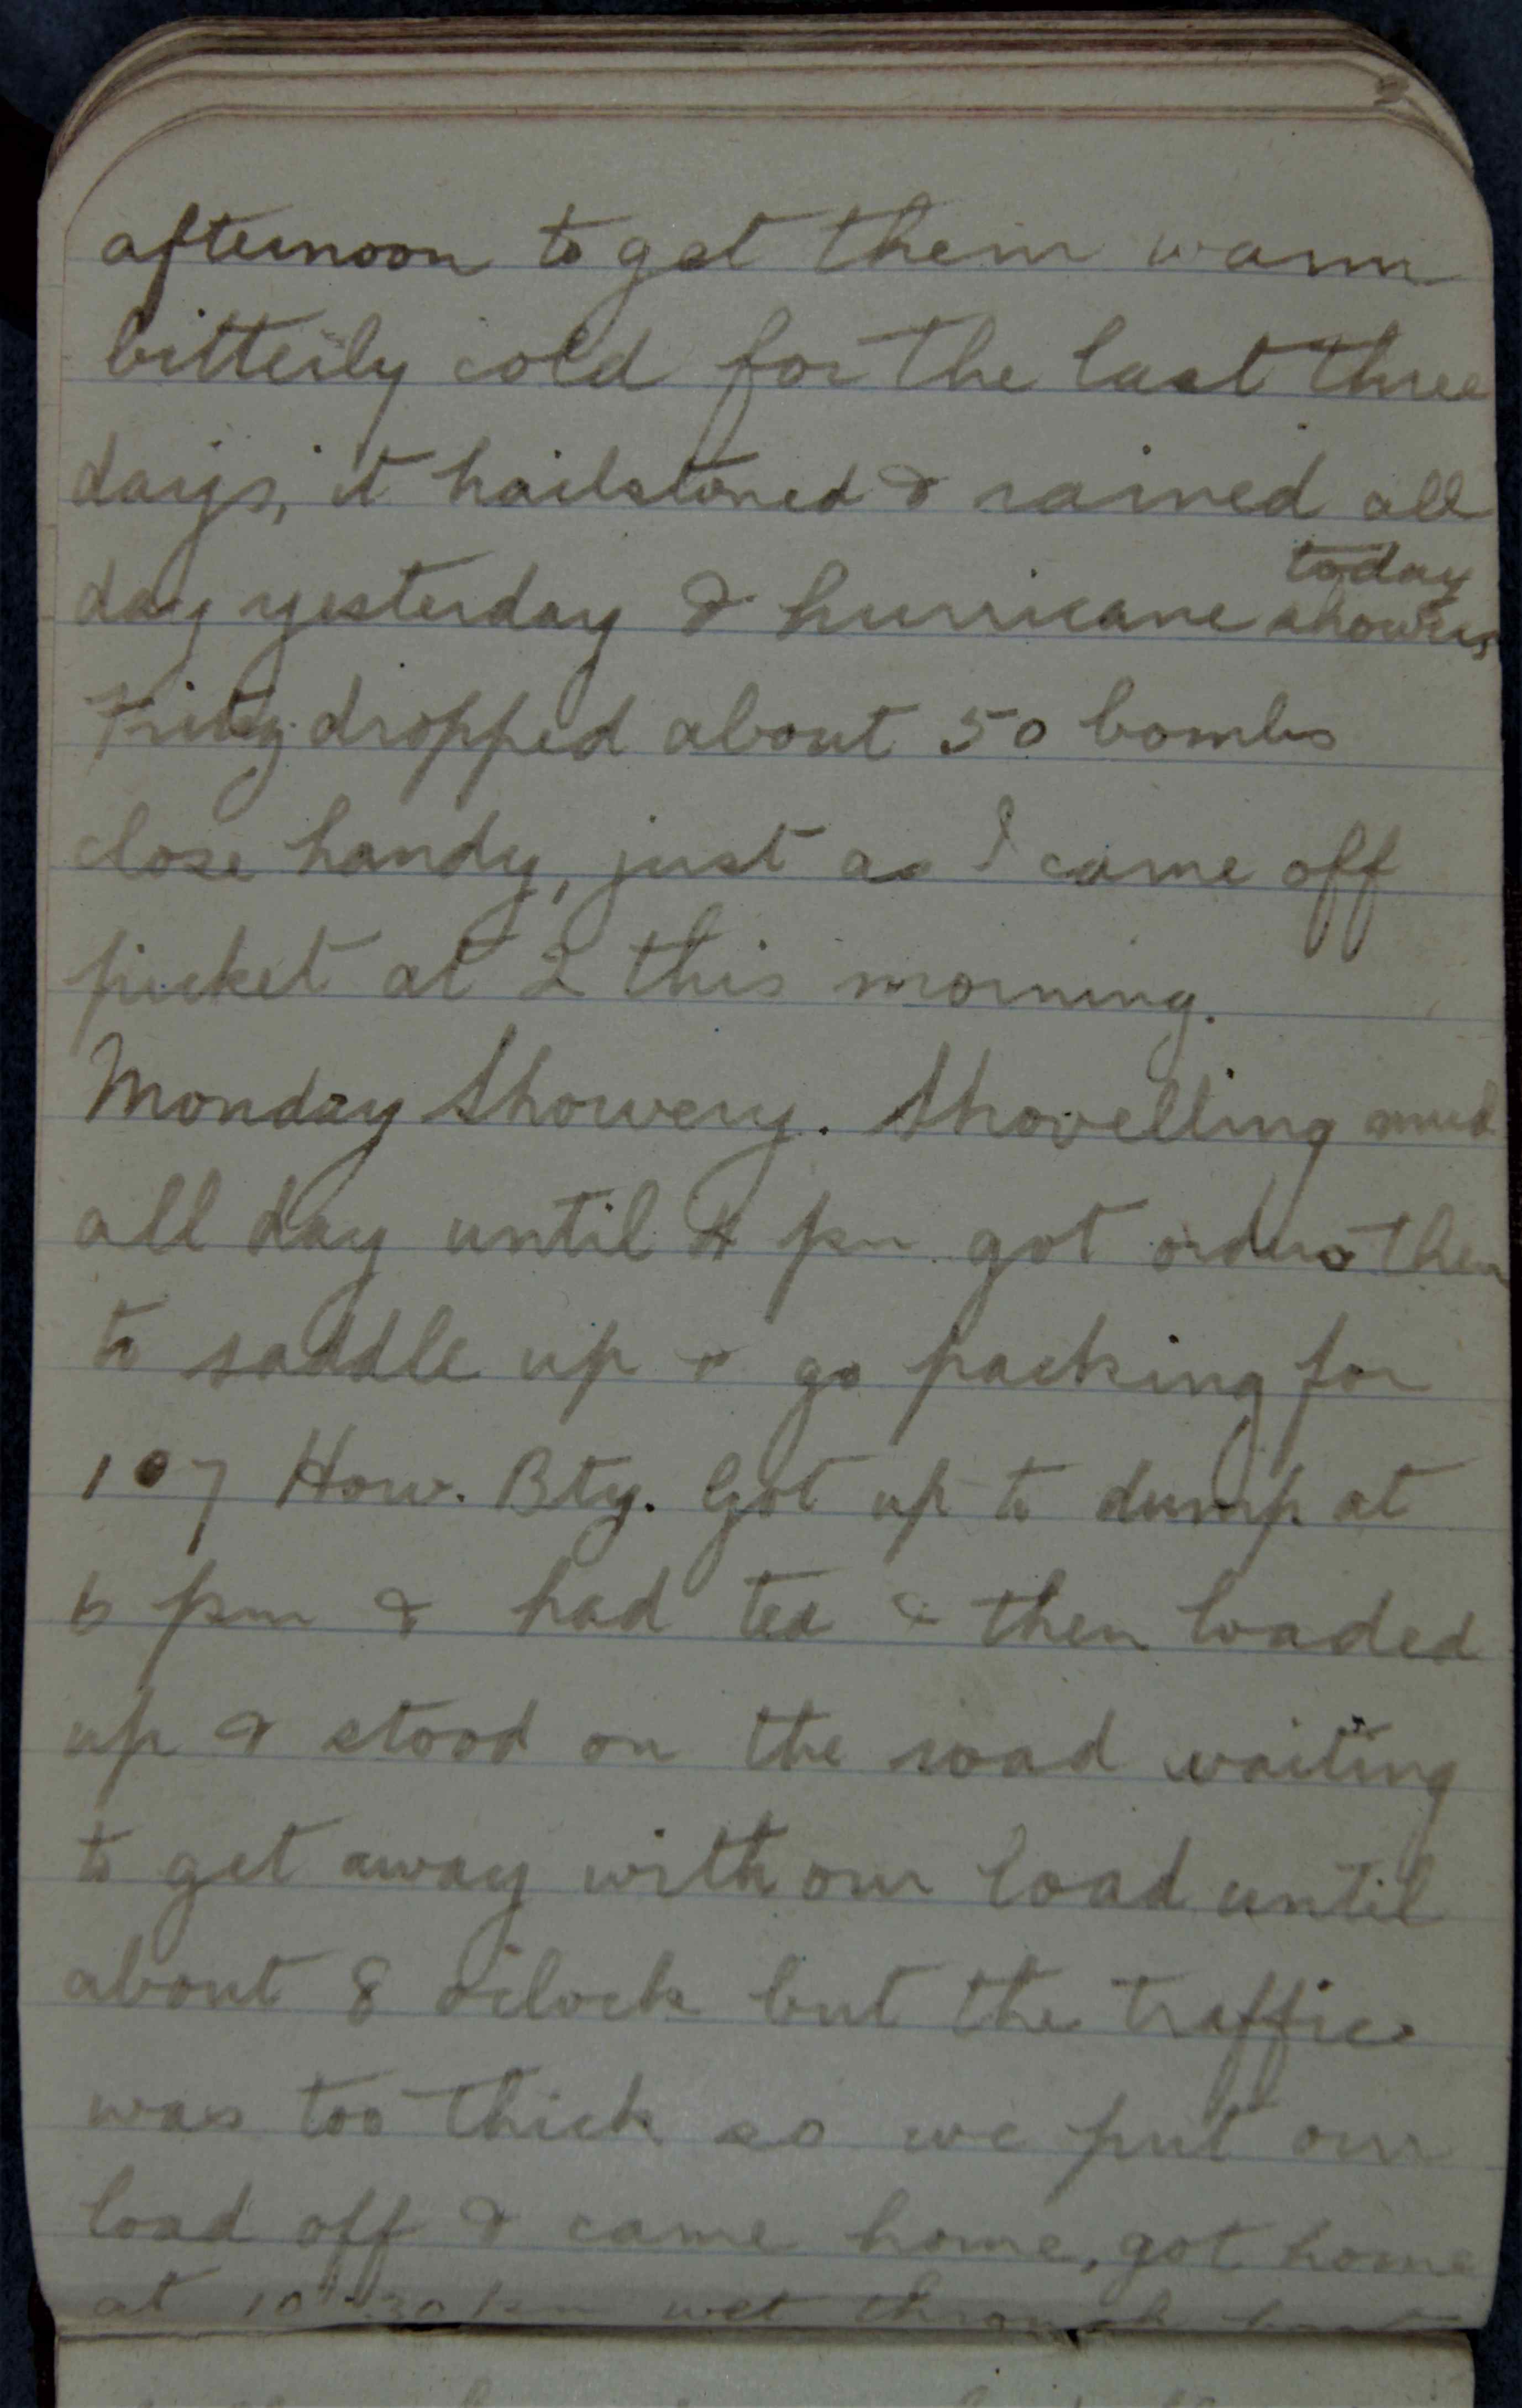 afternoon to get them warm
bitterly cold for the last three
days, it hailstoned & rained all
today
day yesterday & hurricane showers
Fritz dropped about 50 bombs
close handy, just as I came off
picket at 2 this morning.
Monday Showery. Shovelling mud
all day until 4 pm got orders then
to saddle up & go packing for
107 How. Bty. Got up to dump at
6 pm & had tea & then loaded
up & stood on the road waiting
to get away with our load until
about 8 o'clock but the traffic
was too thick so we put our
load off & came home, got home
at 10-30 pm wet through